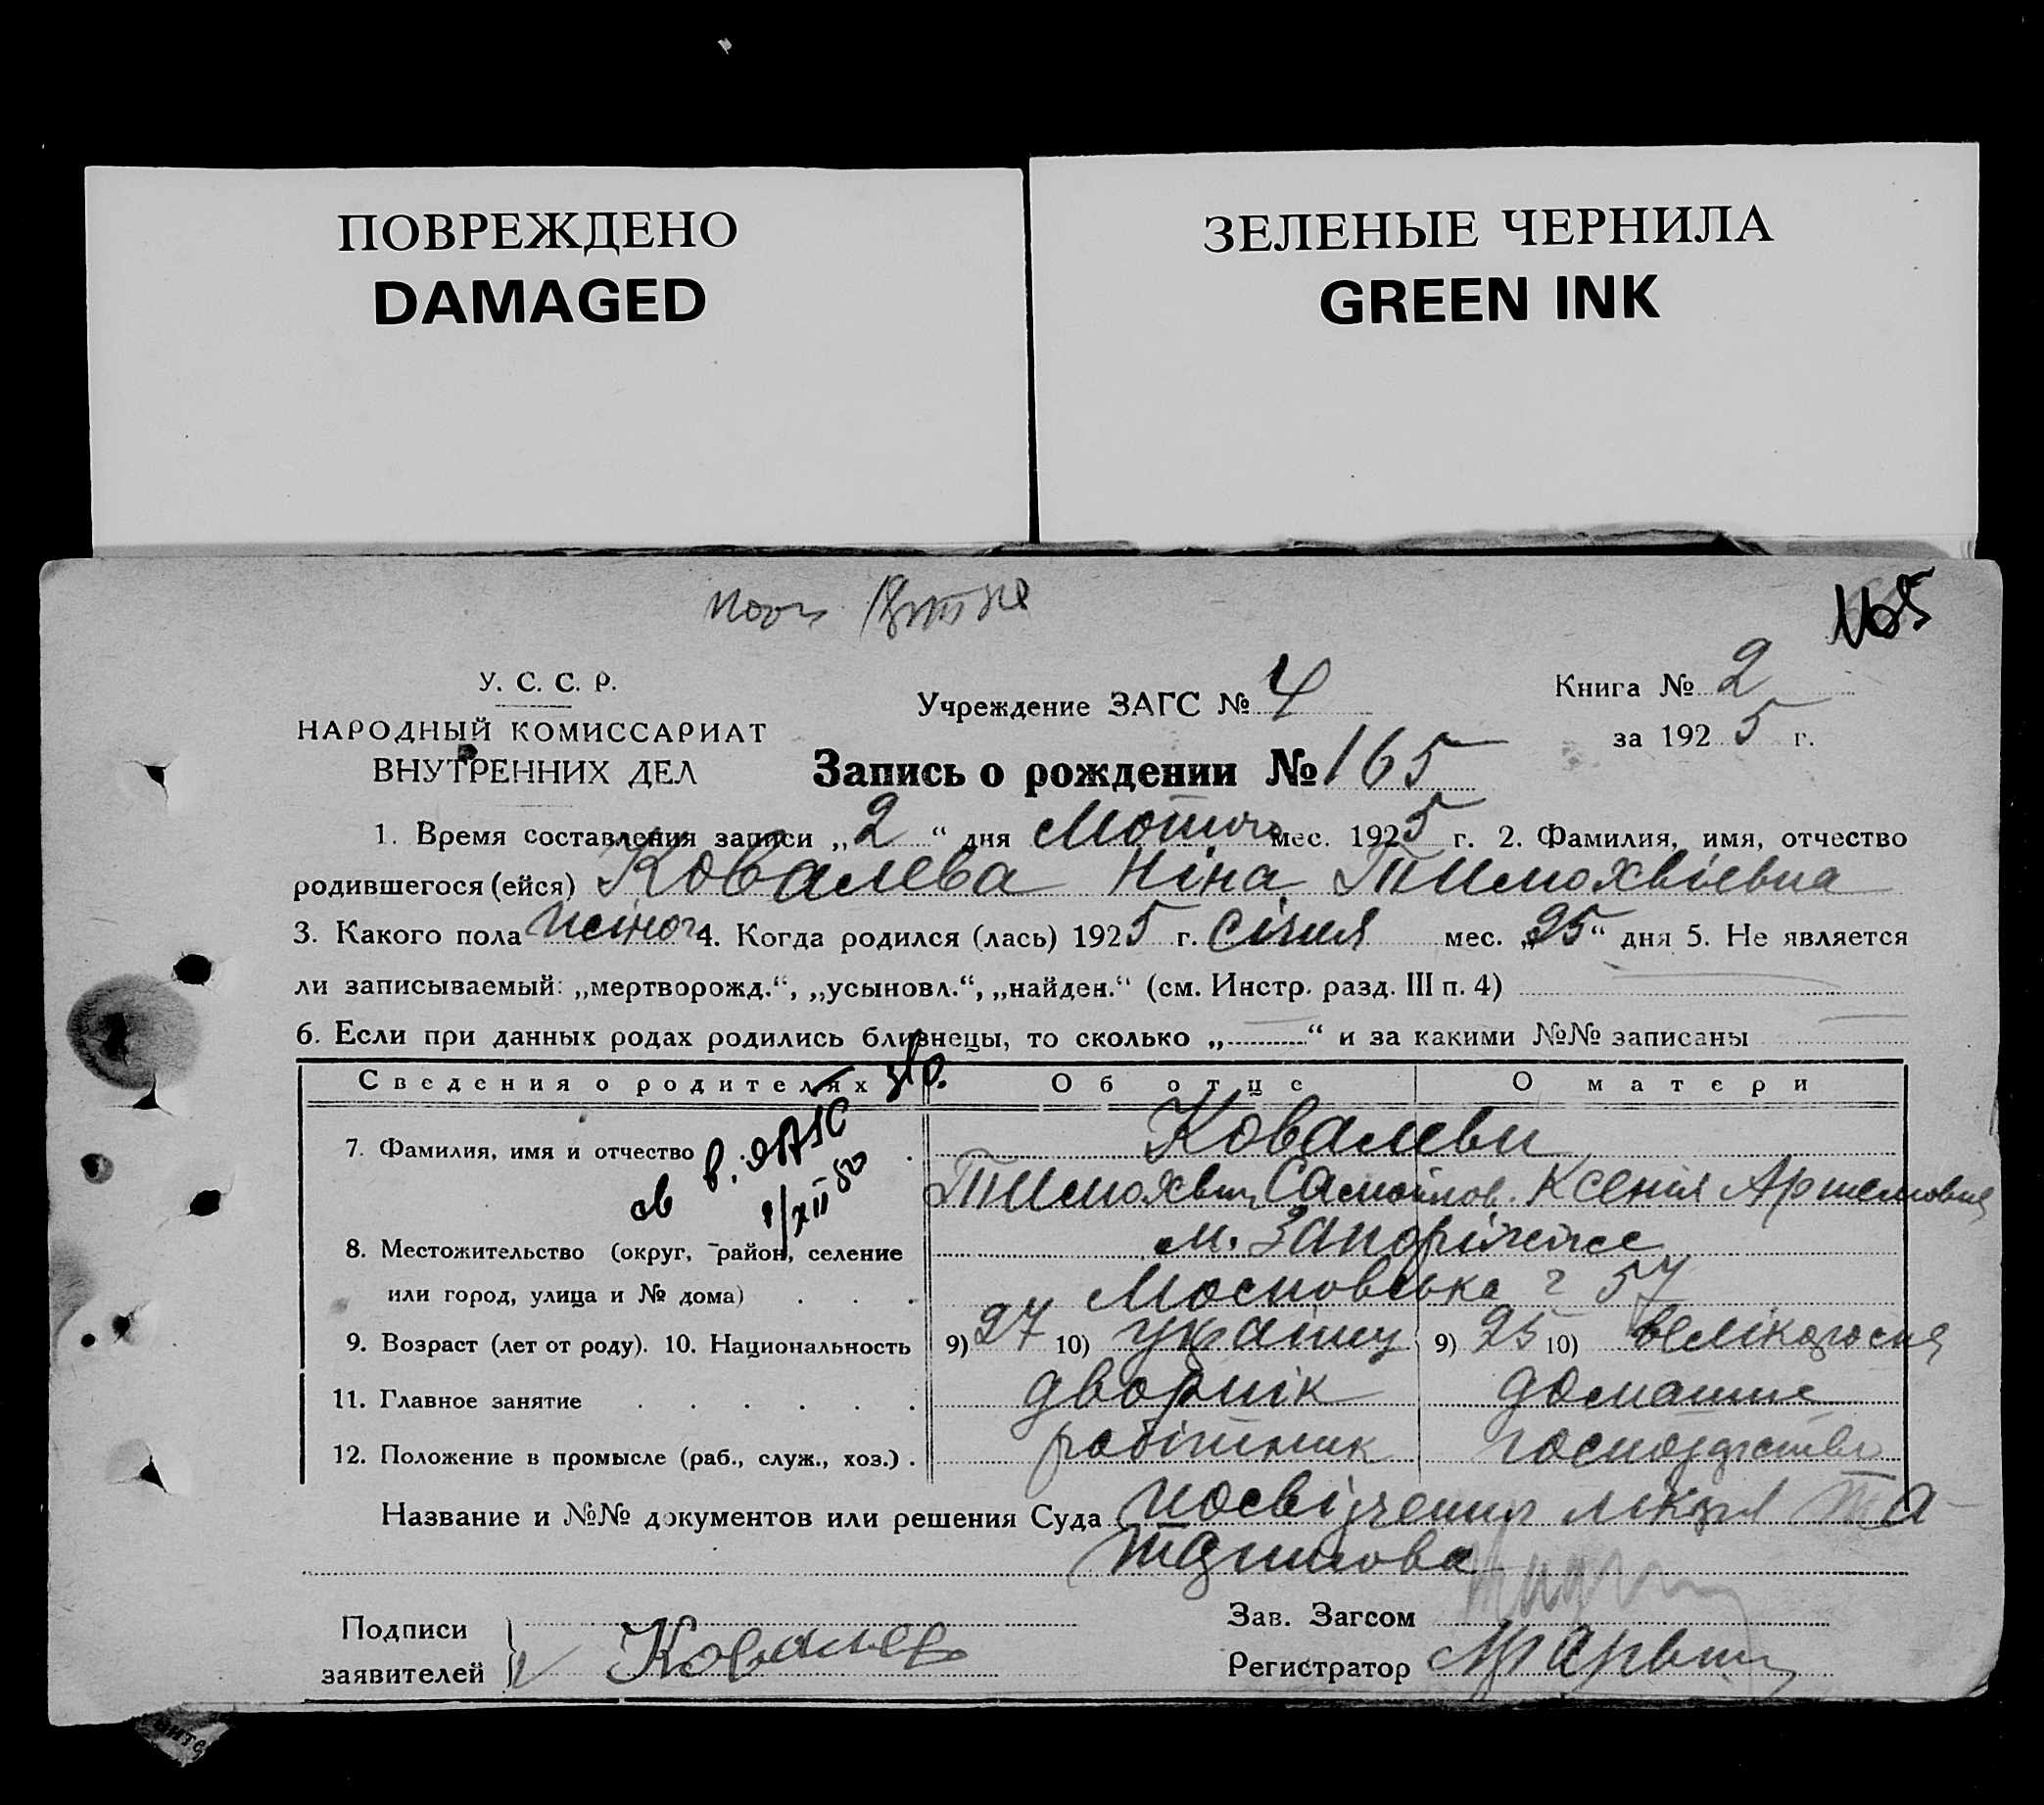 ПОВРЕЖДЕНО
DAMAGED
ЗЕЛЕНЫЕ ЧЕРНИЛА
GREEN INK
165
У. С. С. Р.
НАРОДНЫЙ КОМИССАРИАТ
ВНУТРЕННИХ ДЕЛ
Учреждение ЗАГС № 4
Книга № 2
за 1925 г.
Запись о рождении № 165
1. Время составления записи „2“ дня Лютого мес. 1925 г. 2. Фамилия, имя, отчество
родившегося (ейся) Ковалева Ніна Тимохвіевна
3. Какого пола жіноч 4. Когда родился (лась) 1925 г. Січня мес. „25“ дня 5. Не является
ли записываемый: „мертворожд.“, „усыновл.“, „найден.“ (см. Инстр. разд. III п. 4)
6. Если при данных родах родились близнецы, то сколько „ “ и за какими №№ записаны
Сведения о родителях Об отце О матери
7. Фамилия, имя и отчество Ковалеви
Тимохвій Самойлов. Ксенія Артемовна
8. Местожительство (округ, район, селение м. Запоріжже
или город, улица и № дома) Московська 57
9. Возраст (лет от роду). 10. Национальность 9) 27 10) українц 9) 25 10) великоросія
11. Главное занятие дворнік домашне
12. Положение в промысле (раб., служ., хоз.) робітник господарство
Название и №№ документов или решения Суда посвідчення лікаря та
Подписи
заявителей Ковалев
Зав. Загсом
Регистратор